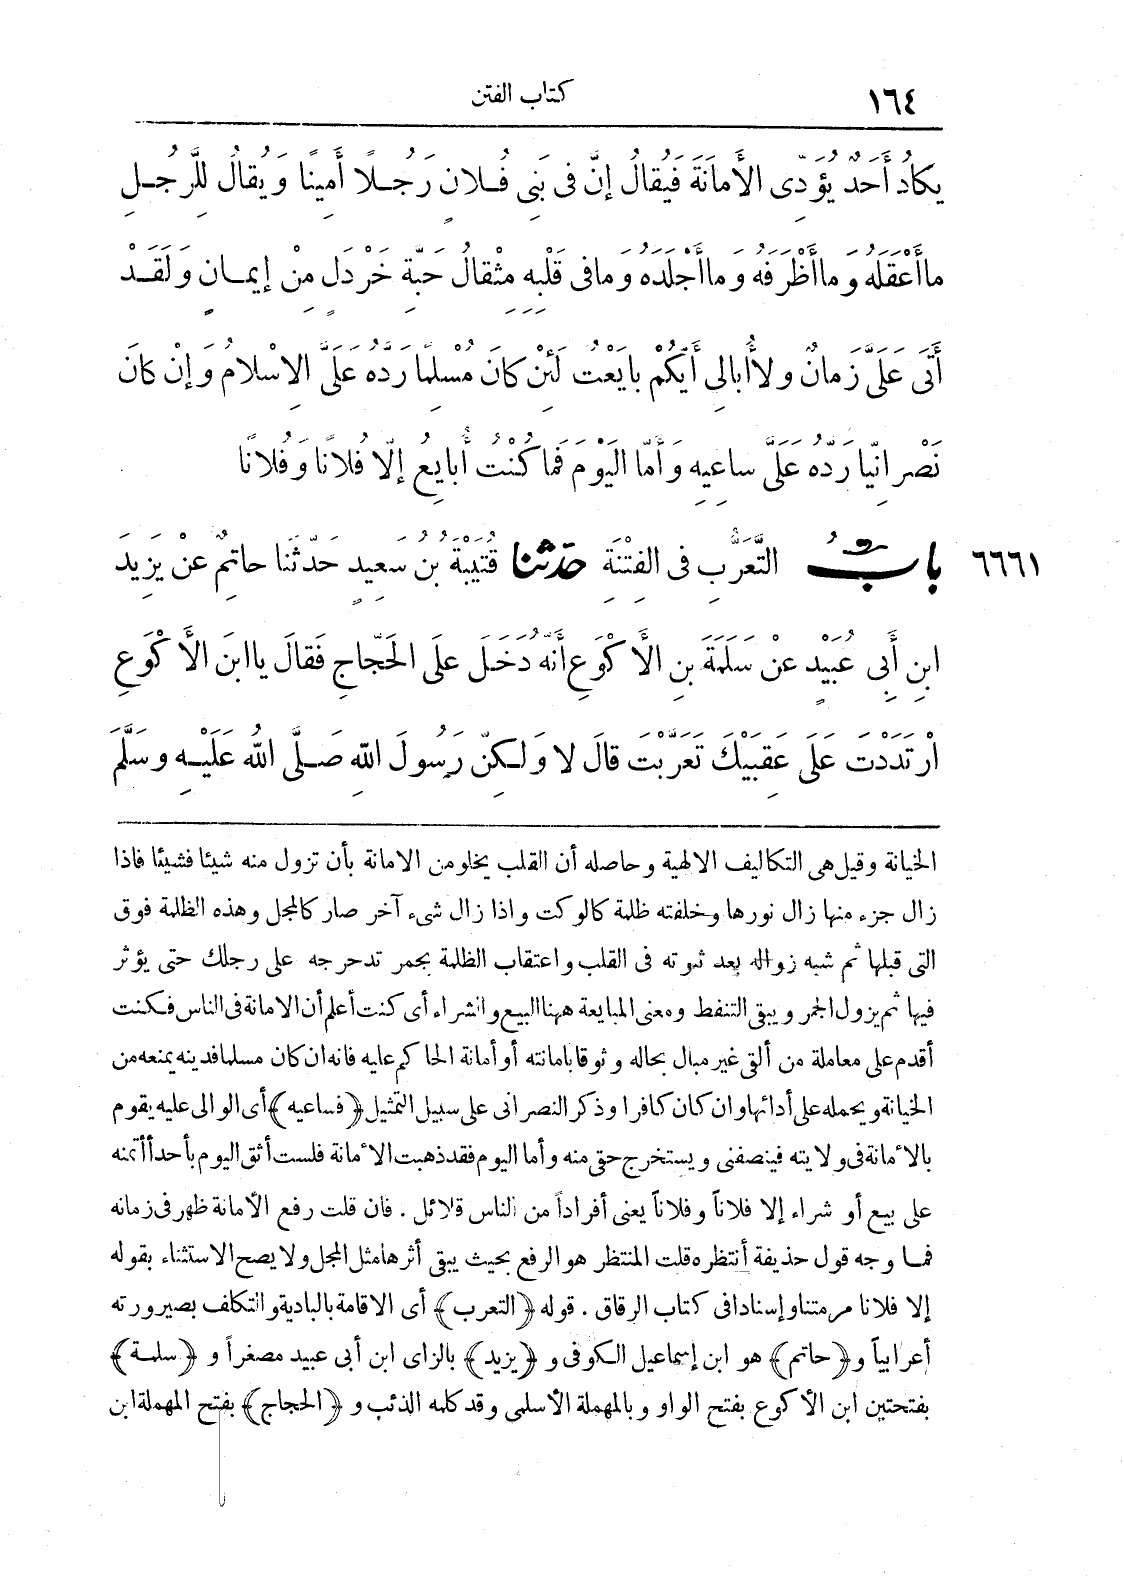 ١٦٤ كتاب الفتن
يَكادُ أَحَدٌ يُؤَدِّى الأَمانَةَ فَيُقالُ إنَّ فى بَنِى فُلانٍ رَجُلًا أَمِينًا وَيُقالُ لِلرَّجُلِ
ماأَعْقَلَهُ وَماأَظْرَفَهُ وَماأَجْلَدَهُ وَمافى قَلْبِهِ مِثْقالُ حَبَّةِ خَرْدَلٍ مِنْ إيمانٍ وَلَقَدْ
أَتَى عَلَىَّ زَمانٌ ولاأُبالِى أَيَّكُمْ بايَعْتُ لَئِنْ كانَ مُسْلِمًا رَدَّهُ عَلَىَّ الإِسْلامُ وَإنْ كانَ
نَصْرانِيًّا رَدَّهُ عَلَىَّ ساعِيهِ وَأَمَّا اليَوْمَ فَما كُنْتُ أُبايِعُ إلّا فُلانًا وَفُلانًا
٦٦٦١ بابُ التَّعَرُّبِ فى الفِتْنَةِ حدّثنا قُتَيْبَةُ بنُ سَعِيدٍ حَدَّثَنا حاتِمٌ عَنْ يَزِيدَ
ابنِ أَبِى عُبَيْدٍ عَنْ سَلَمَةَ بنِ الأَكْوَعِ أَنَّهُ دَخَلَ علَى الحَجّاجِ فَقالَ ياابنَ الأَكْوَعِ
ارْتَدَدْتَ عَلَى عَقِبَيْكَ تَعَرَّبْتَ قالَ لا وَلكِنَّ رَسُولَ اللّهِ صَلَّى اللهُ عَلَيْهِ وسَلَّمَ
الخيانة وقيل هى التكاليف الالهية وحاصله أن القلب يخلو من الامانة بأن تزول منه شيئا فشيئا فاذا
زال جزء منها زال نورها وخلفته ظلمة كالوكت واذا زال شىء آخر صار كالمجل وهذه الظلمة فوق
التى قبلها ثم شبه زواله بعد ثبوته فى القلب واعتقاب الظلمة بجمر تدحرجه على رجلك حتى يؤثر
فيها ثم يزول الجمر ويبقى التنفط ومعنى المبايعة ههنا البيع والشراء أى كنت أعلم أن الامانة فى الناس فكنت
أقدم على معاملة من ألقى غير مبال بحاله وثوقا بامانته أو أمانة الحاكم عليه فانه ان كان مسلما فدينه يمنعه من
الخيانة ويحمله على أدائها وان كان كافرا وذكر النصرانى على سبيل التمثيل ﴿فساعيه﴾ أى الوالى عليه يقوم
بالأمانة فى ولايته فينصفنى ويستخرج حقى منه وأما اليوم فقد ذهبت الأمانة فلست أثق اليوم بأحد أأتمنه
على بيع أو شراء إلا فلاناً وفلاناً يعنى أفراداً من الناس قلائل . فان قلت رفع الأمانة ظهر فى زمانه
فما وجه قول حذيفة أنتظره قلت المنتظر هو الرفع بحيث يبقى أثرها مثل المجل ولا يصح الاستثناء بقوله
إلا فلانا مر متنا وإسنادا فى كتاب الرقاق . قوله ﴿التعرب﴾ أى الاقامة بالبادية والتكلف بصيرورته
أعرابياً و﴿حاتم﴾ هو ابن إسماعيل الكوفى و ﴿يزيد﴾ بالزاى ابن أبى عبيد مصغراً و ﴿سلمة﴾
بفتحتين ابن الأكوع بفتح الواو وبالمهملة الأسلمى وقد كلمه الذئب و ﴿الحجاج﴾ بفتح المهملة ابن